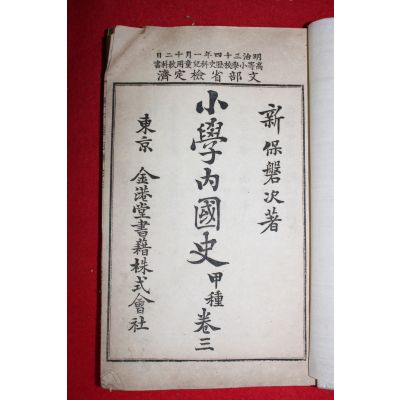 明治三十四年一月十二日
高等小學校歷史科兒童用敎科書
文部省檢定濟
新保磐次著
小學內國史 甲種 卷三
東京 金港堂書籍株式會社